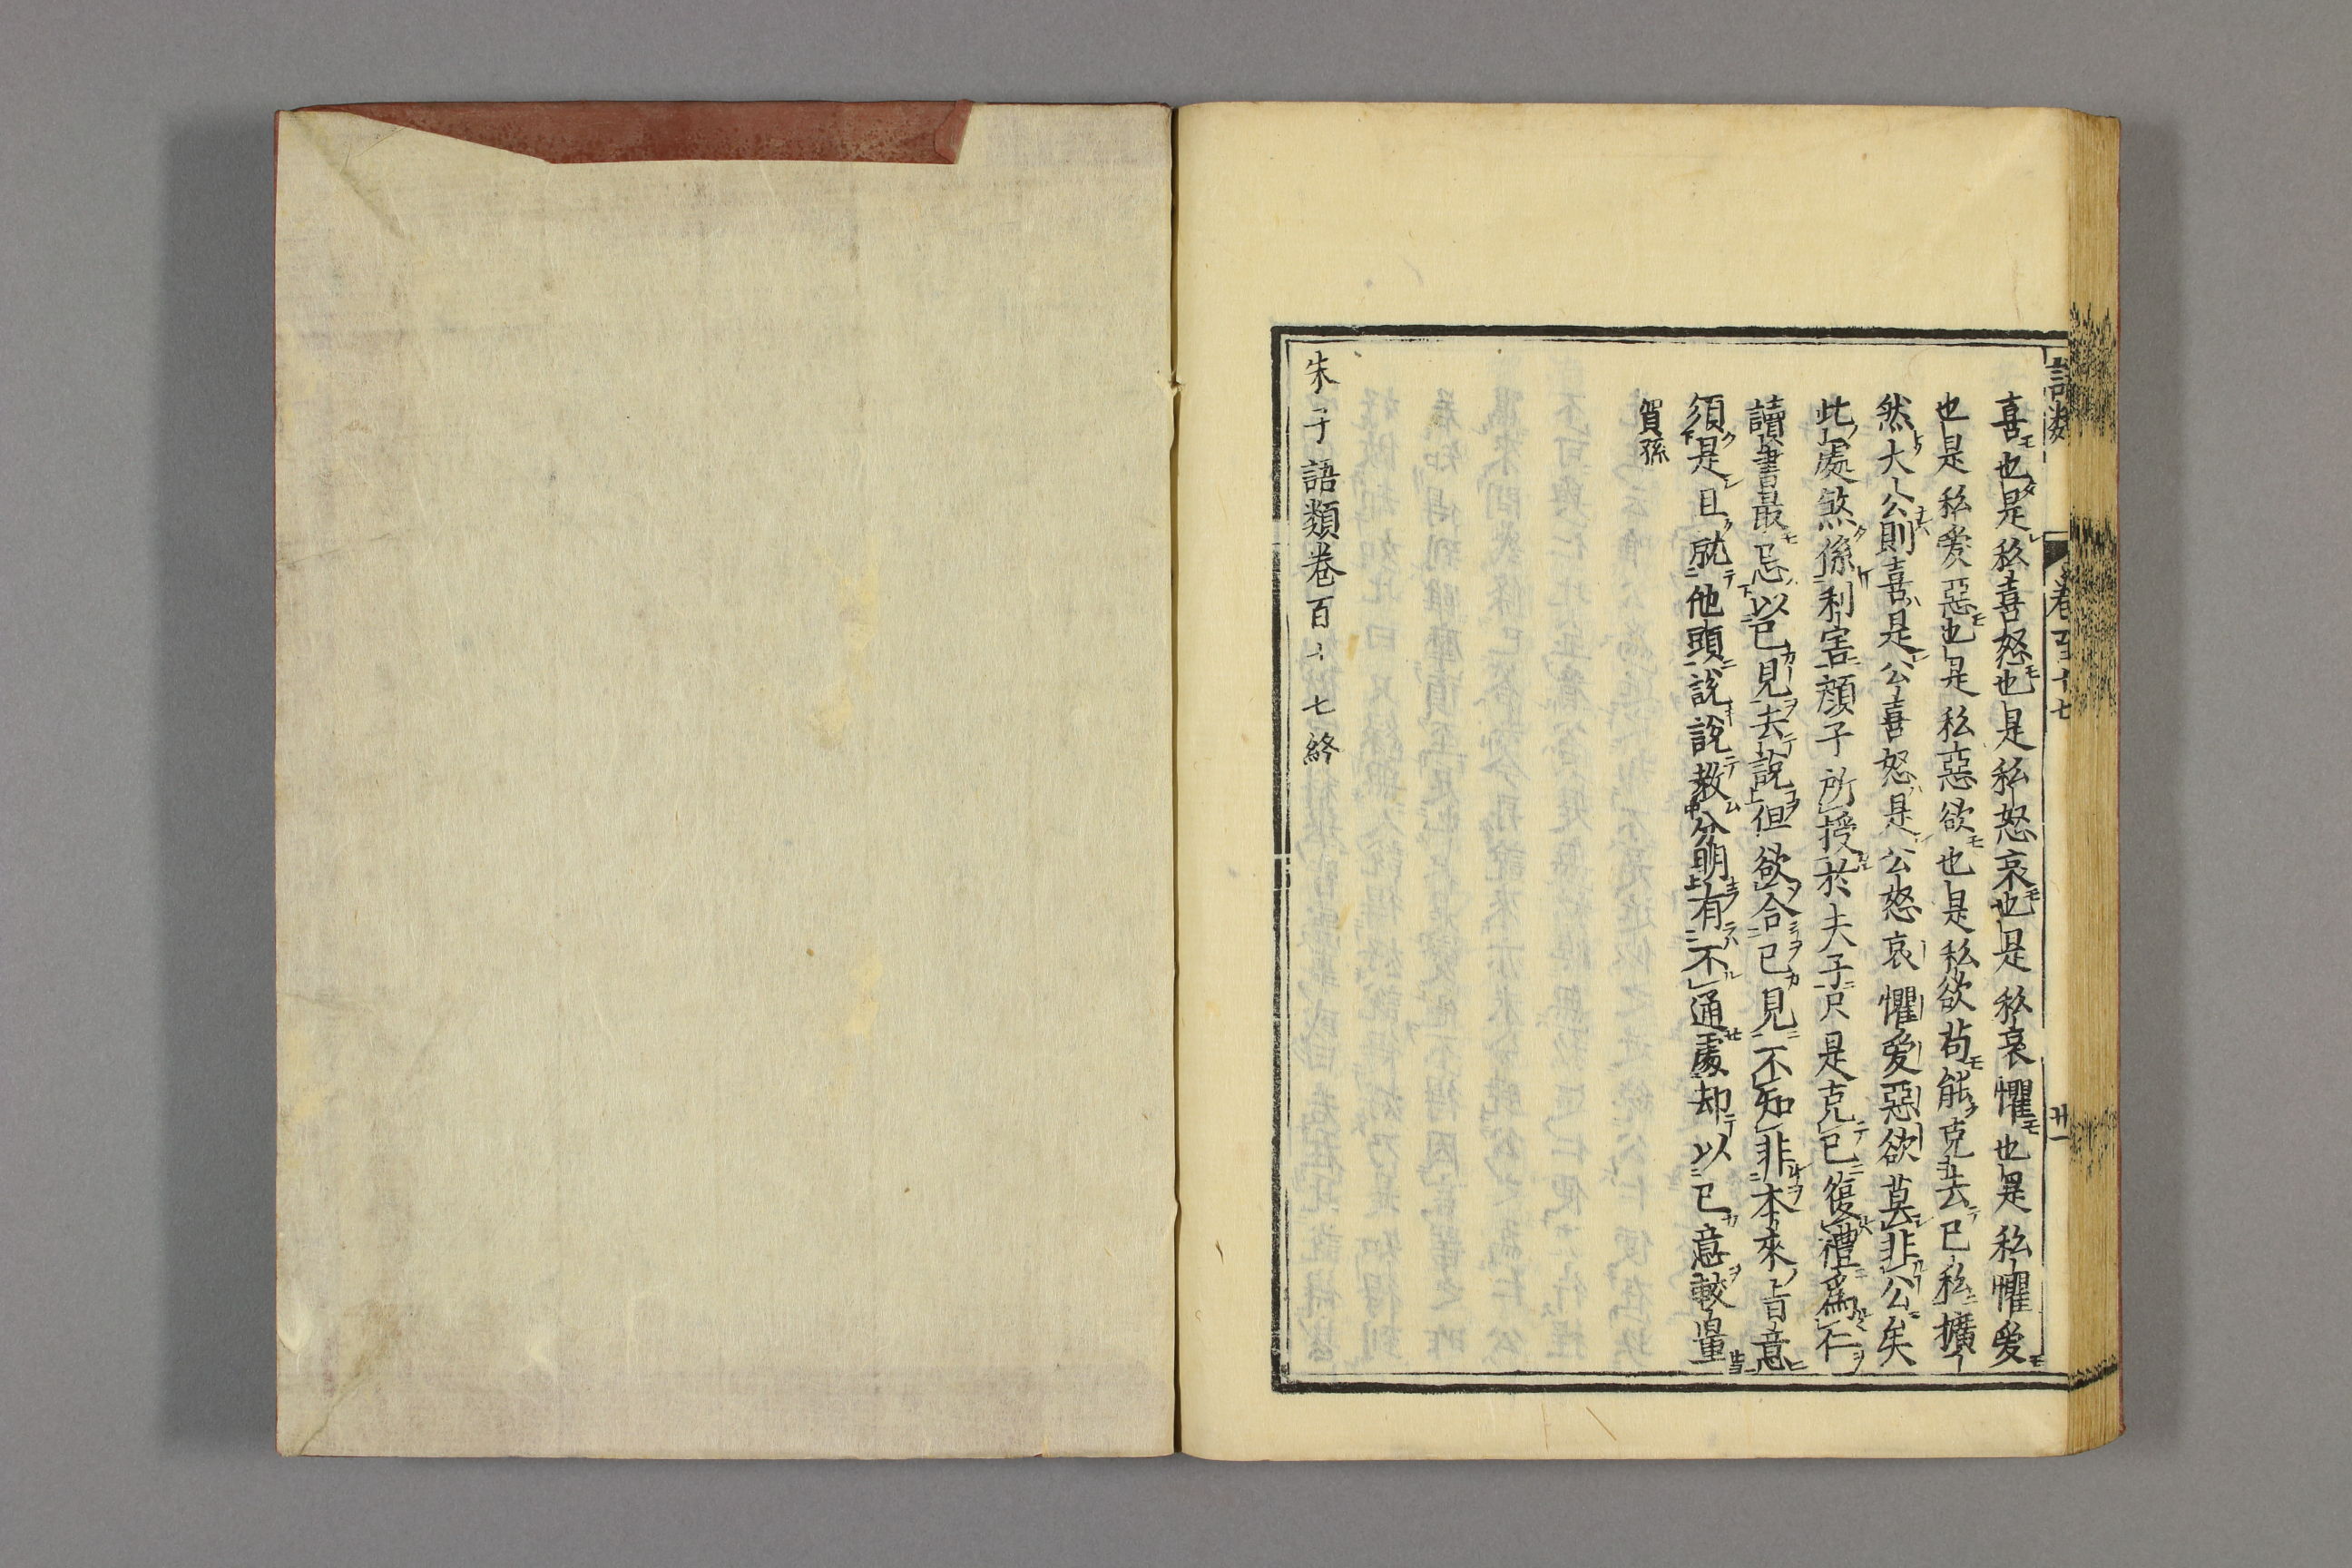 喜也是私喜怒也是私怒哀也是私哀懼也是私懼爱
也是私爱惡也是私惡欲也是私欲苟能克去已私擴
然大公則喜是公喜怒是公怒哀懼爱惡欲莫非公矣
此處煞係利害顔子所授於夫子只是克已復禮爲仁
讀書最忌以已見去說但欲合已見不知非本來旨意
須是且就他頭說說教分明有不通處却以已意較量
賀孫
朱子語類卷百十七終